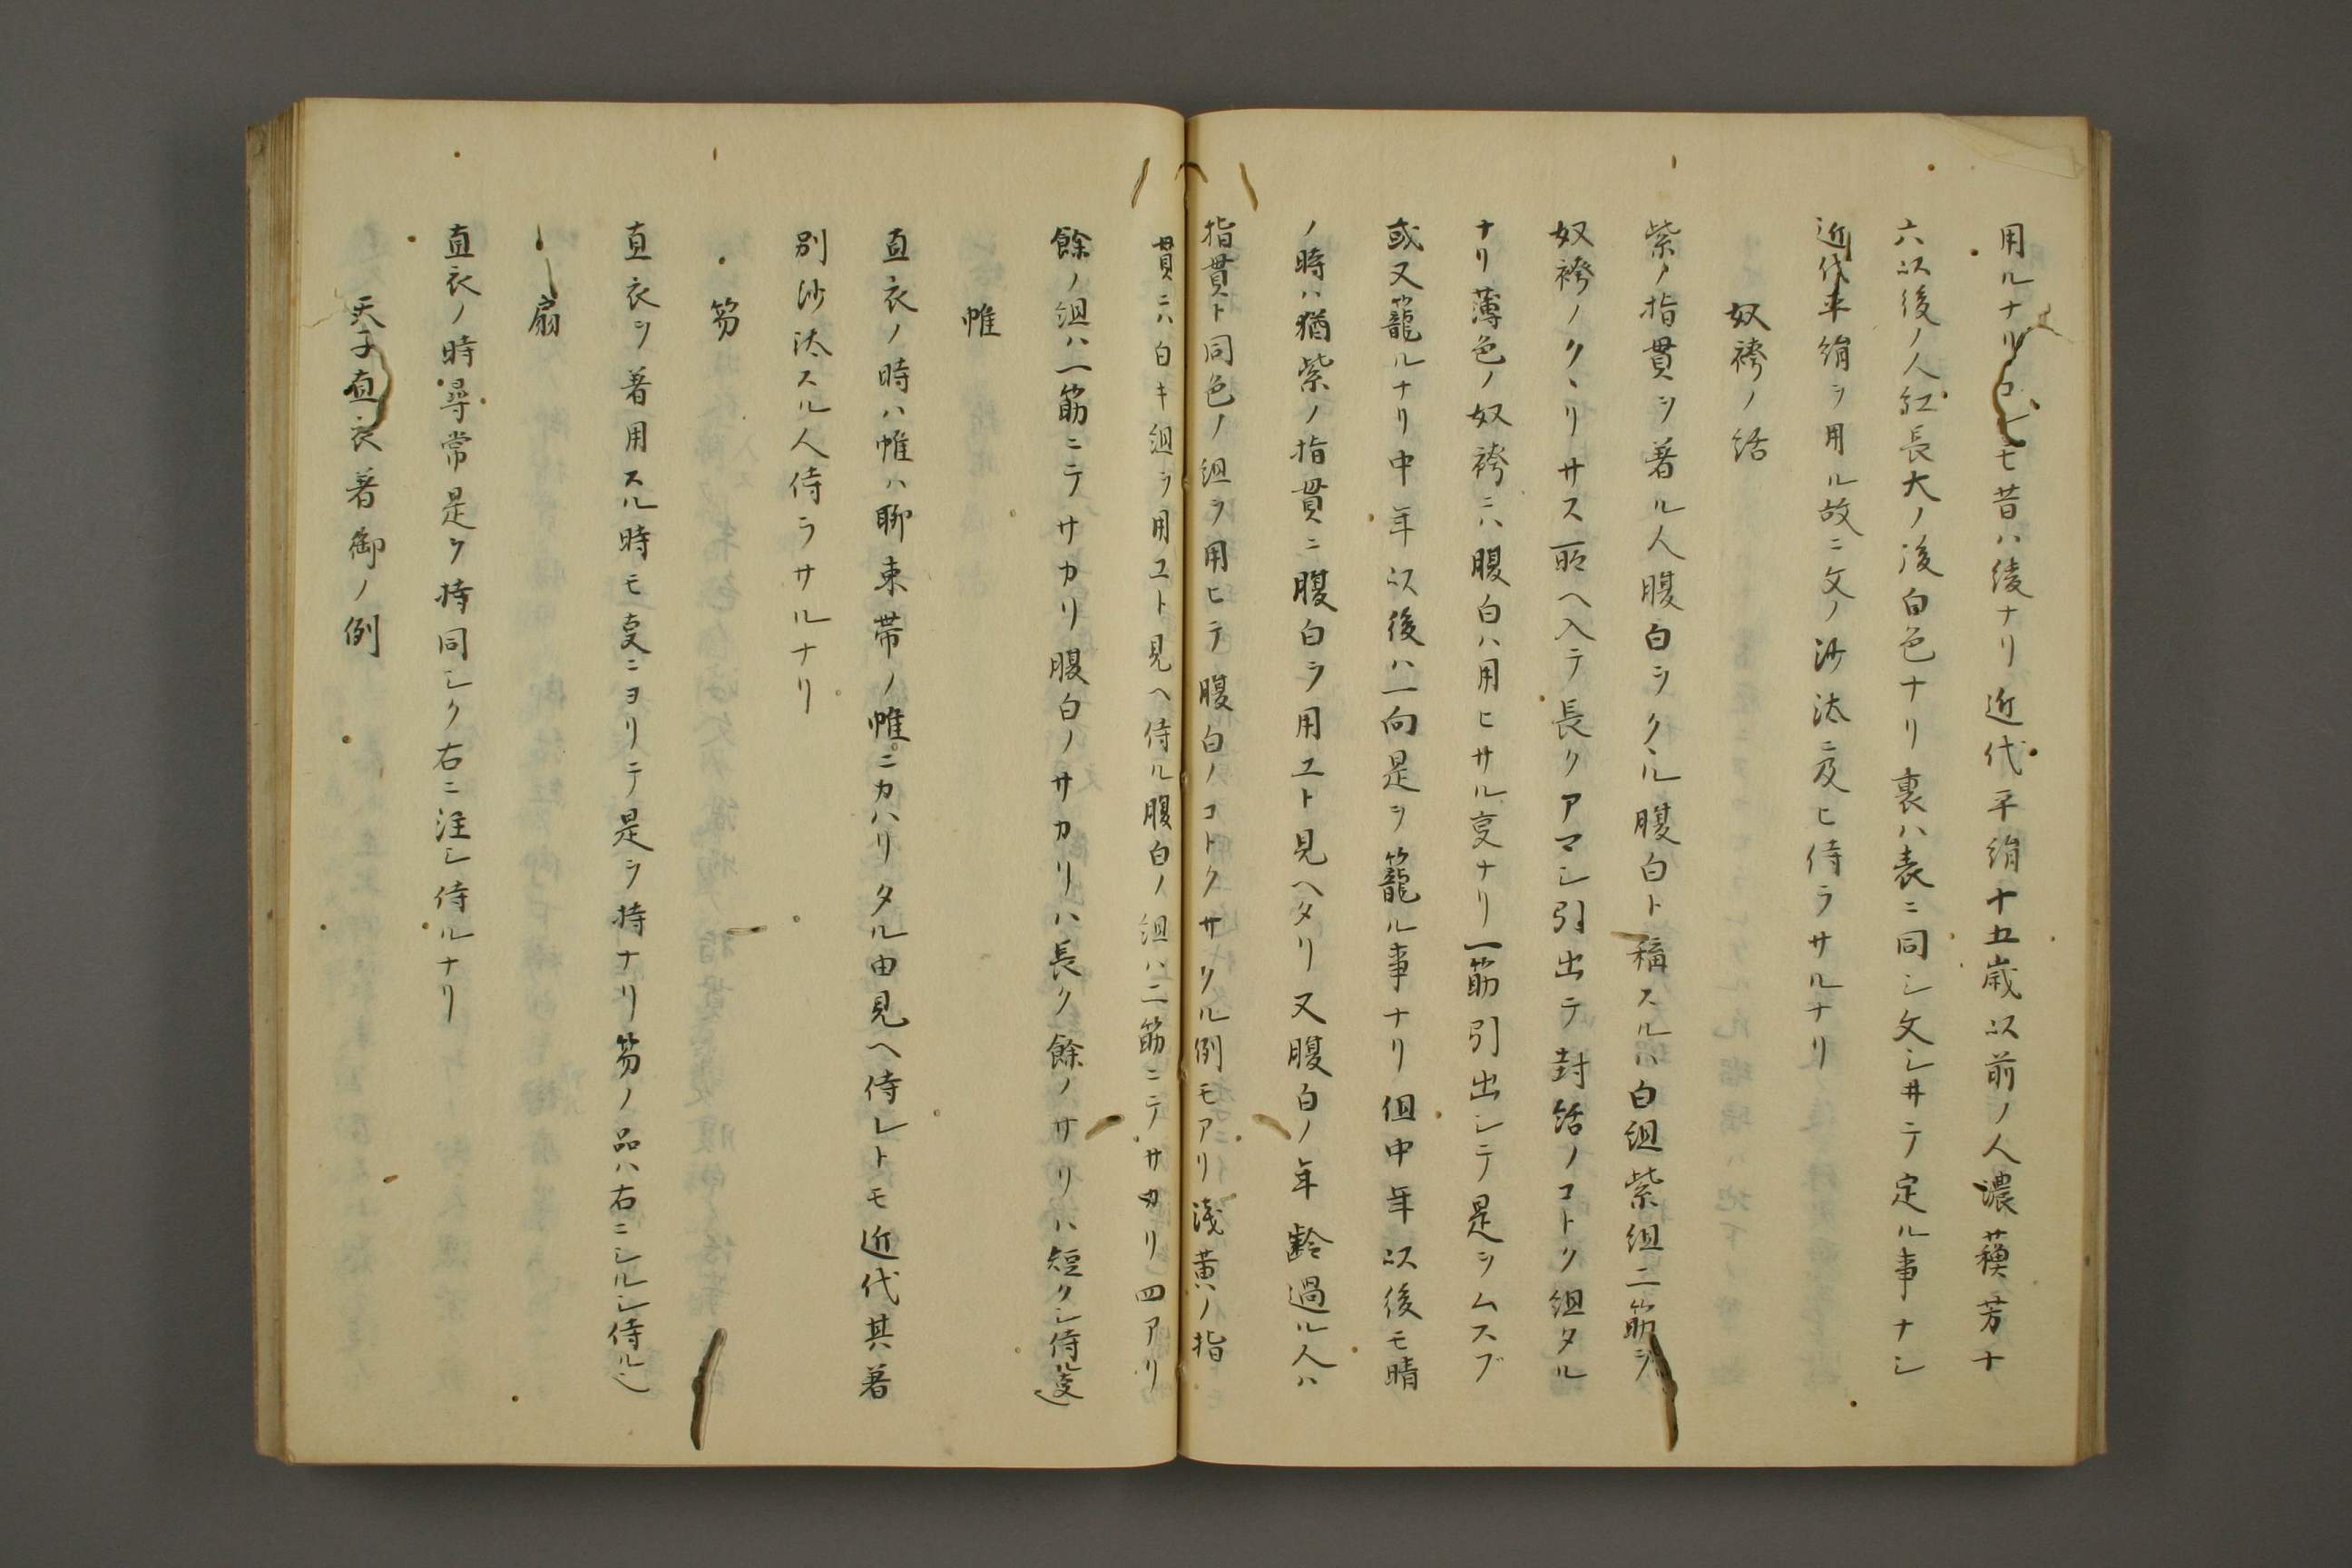 用ルナリコレモ昔ハ綾ナリ近代平絹十五歳以前ノ人濃蘓芳十
六以後ノ人紅長大ノ後白色ナリ裏ハ表ニ同シ文シ井テ定ル事ナシ
近代平絹ヲ用ル故ニ文ノ沙汰ニ及ヒ侍ラサルナリ
奴袴ノ括
紫ノ指貫ヲ著ル人腹白ヲクヽル腹白ト稱スルハ白組紫組二筋ヲ
奴袴ノクヽリサス所ヘ入テ長クアマシ引出テ封結ノコトク組タル
ナリ薄色ノ奴袴ニハ腹白ハ用ヒサル㕝ナリ一筋引出シテ是ヲムスブ
或又籠ルナリ中年以後ハ一向是ヲ籠ル事ナリ但中年以後モ晴
ノ時ハ猶紫ノ指貫ニ腹白ヲ用ユト見ヘタリ又腹白ノ年齢過ル人ハ
指貫ト同色ノ組ヲ用ヒテ腹白ノコトクサクル例モアリ淺黄ノ指
貫ニハ白キ組ヲ用ユト見ヘ侍ル腹白ノ組ハ二筋ニテサカリ四アリ
餘ノ組ハ一筋ニテサカリ腹白ノサカリハ長ク餘ノサリハ短クシ侍ル㕝也
帷
直衣ノ時ハ帷ハ聊束帯ノ帷ニカハリタル由見ヘ侍レトモ近代其著
別沙汰スル人侍ラサルナリ
笏
直衣ヲ著用スル時モ㕝ニヨリテ是ヲ持ナリ笏ノ品ハ右ニシルシ侍ル也
扇
直衣ノ時尋常是ヲ持同シク右ニ注シ侍ルナリ
天子直衣著御ノ例